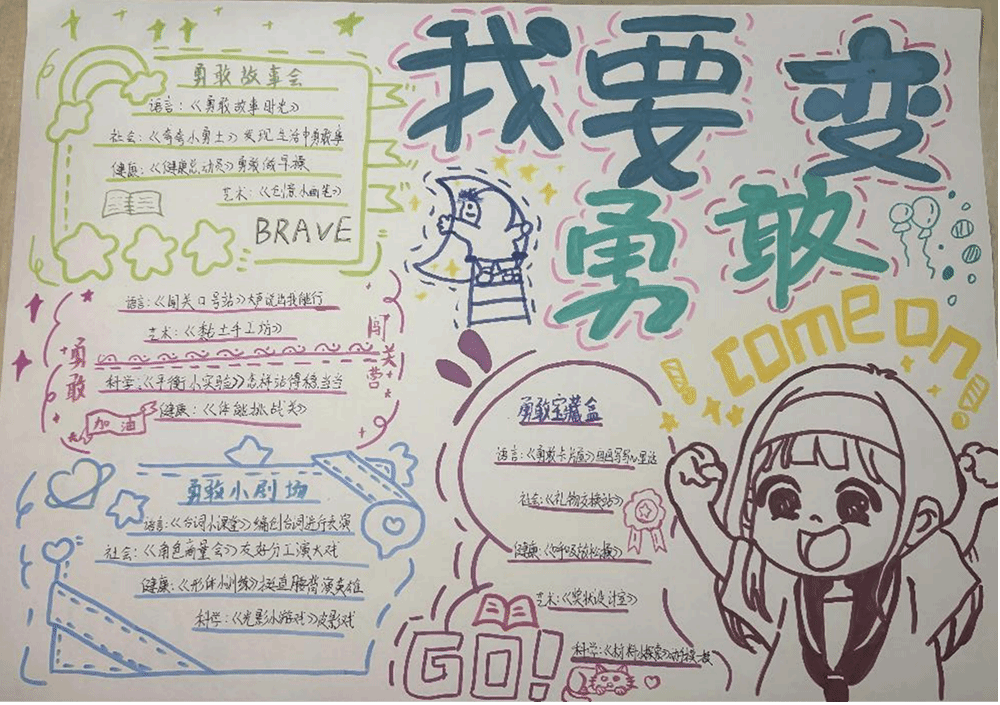 我要变
勇敢
come on!
勇敢故事会
语言:《勇敢故事时光》
社会:《奇奇小勇士》发现生活中勇敢事
健康:《健康总动员》勇敢做早操
艺术:《创意小画笔》
BRAVE
勇敢
闯关营
语言:《闯关口号站》大声说出我能行
艺术:《黏土手工坊》
科学:《平衡小实验》怎样站得稳当当
健康:《体能挑战关》
加油
勇敢小剧场
语言:《台词小课堂》编创台词进行表演
社会:《角色商量会》友好分工演大戏
健康:《形体小训练》挺直腰背演英雄
科学:《光影小游戏》皮影戏
勇敢宝藏盒
语言:《勇敢卡片屋》
社会:《礼物交换站》
健康:《呼吸放松操》
艺术:《奖状设计室》
科学:《材料小探索》
GO!